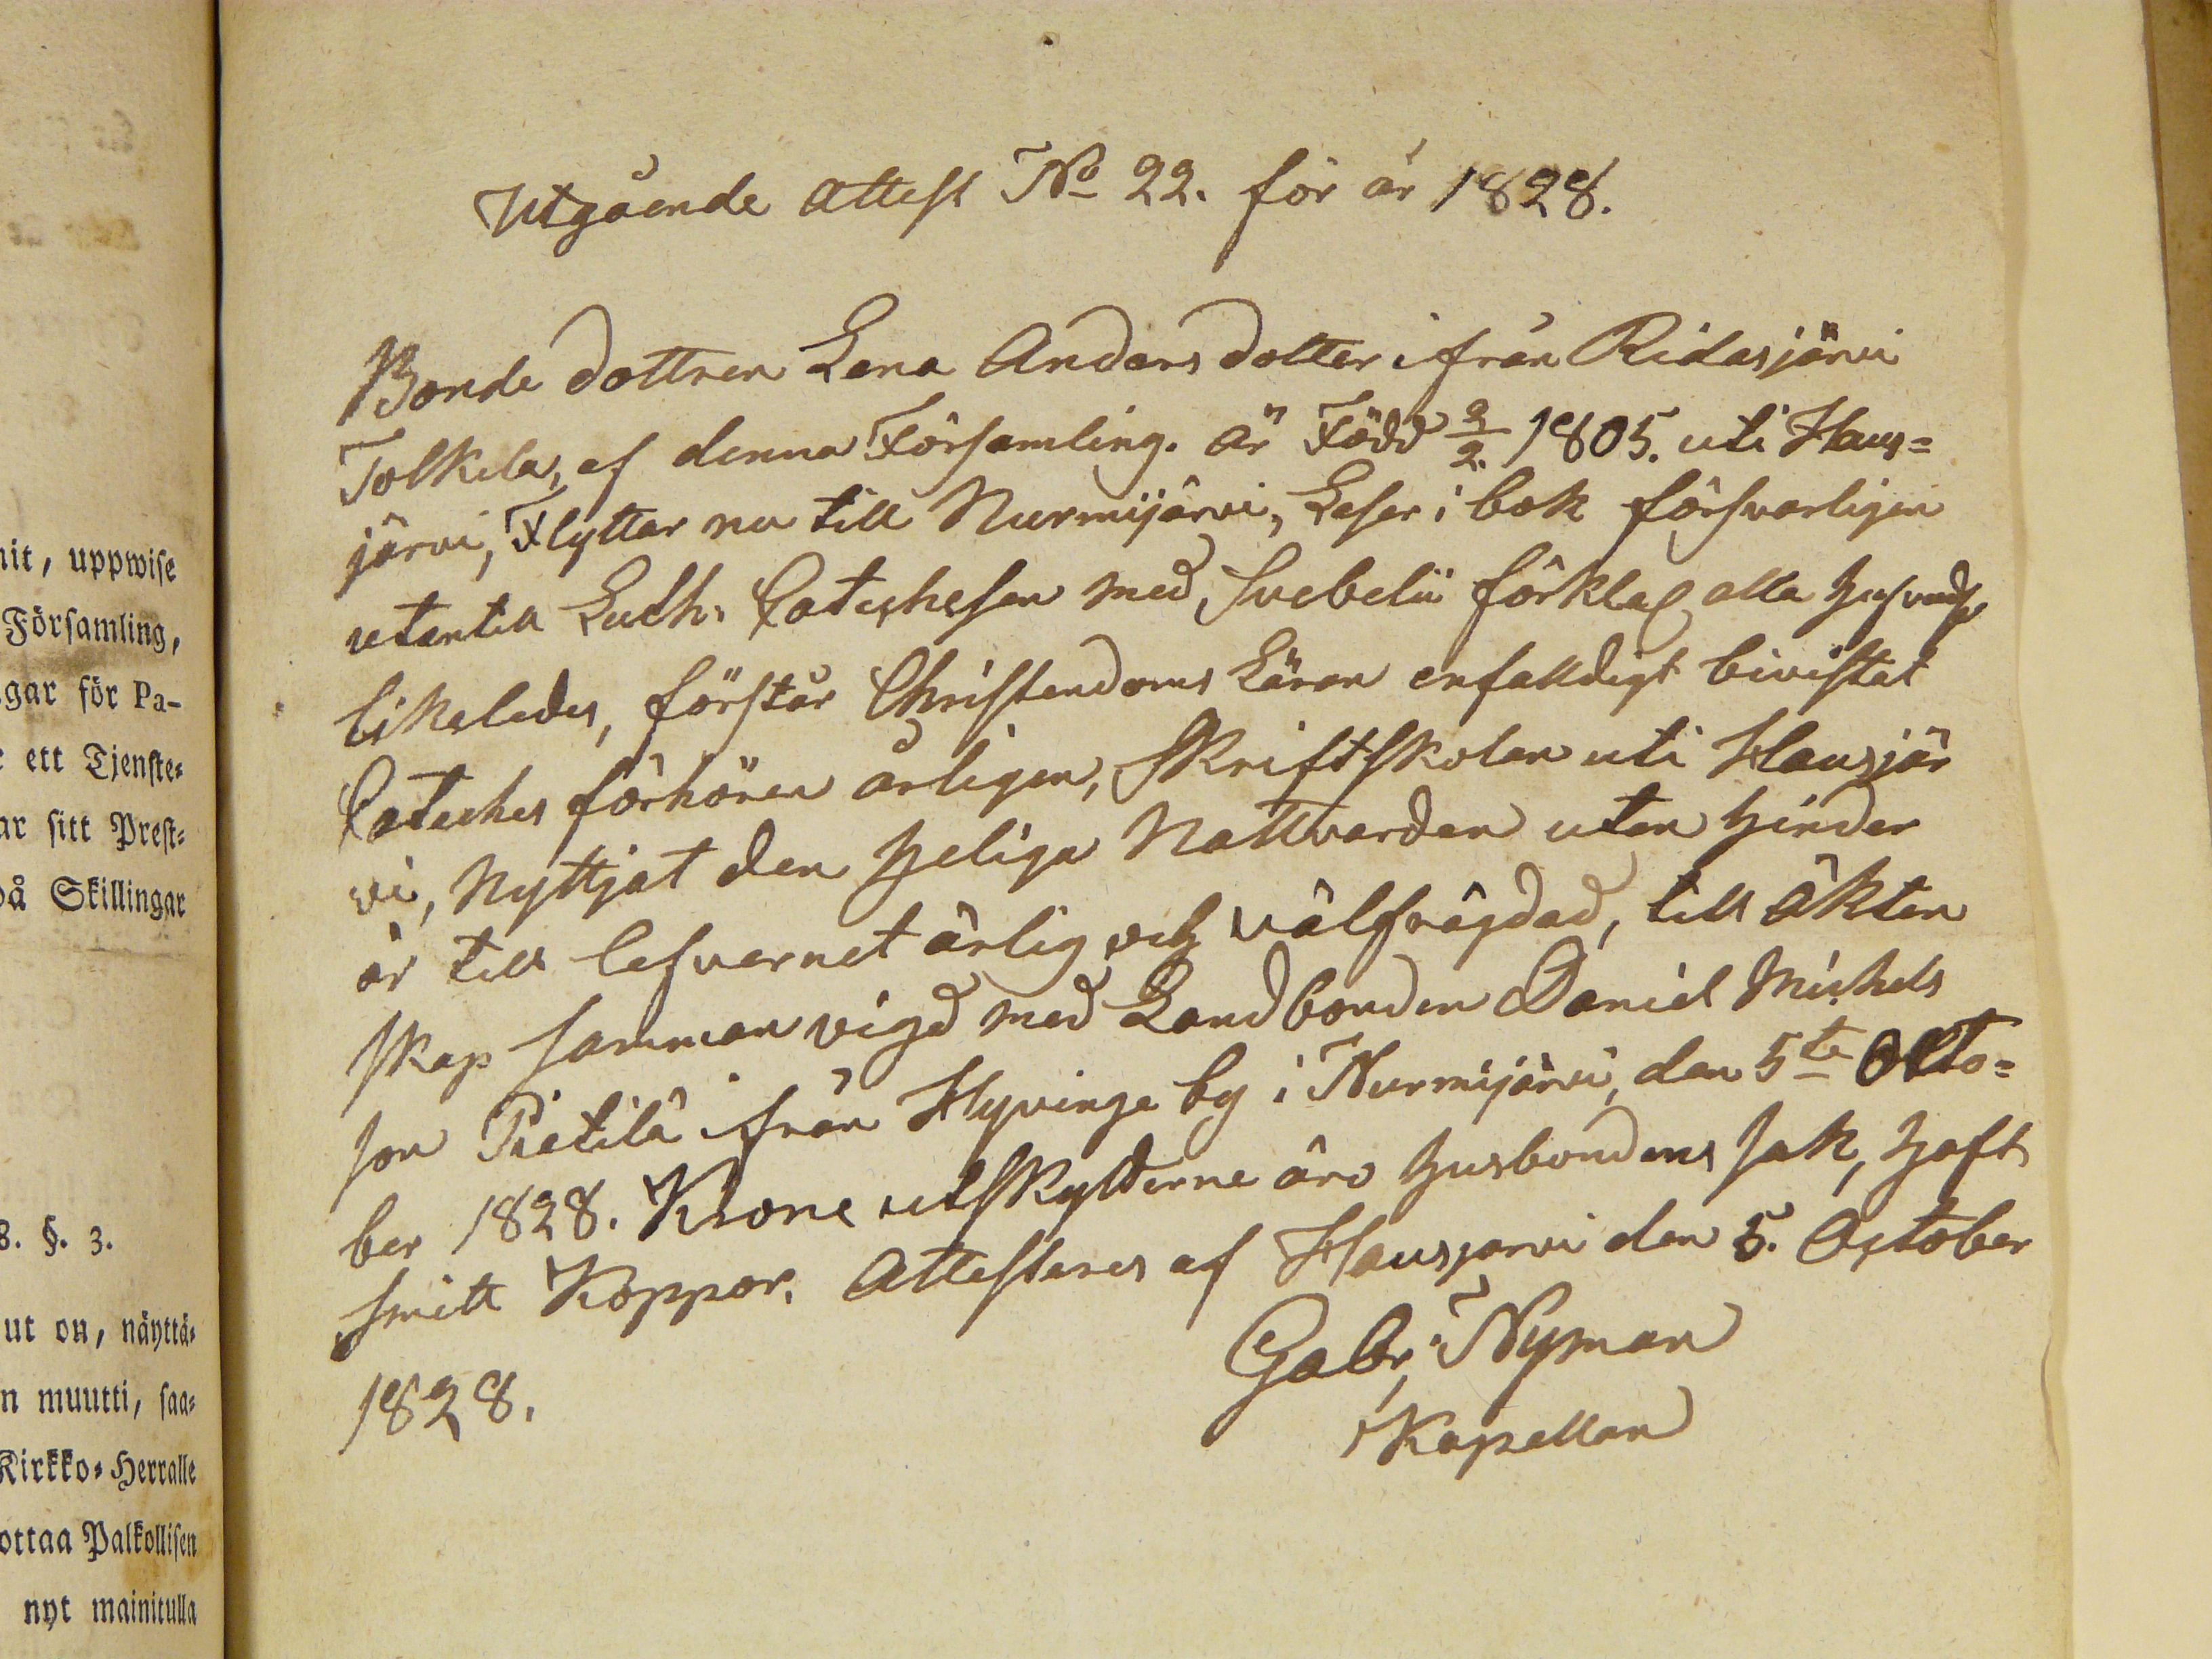 nit, uppwise
Församling,
gar för Pa-
ett Tjenste-
ar sitt Prest-
på Skillingar
8. §. 3.
ut on, näyttä-
n muutti, saa-
Kirkko-Herralle
ottaa Palkollisen
nyt mainitulla
Utgående Attest No 22. för år 1828.
Bonde dottren Lena Anders dotter ifrån Ridasjärvi
Tolkila, af denna Församling. är Född 2/2. 1805. uti Haus=
järvi, Flyttar nu till Nurmijärvi, Läser i bok försvarligen
utantill Luth. Catechesen med Svebelii förkla alla
likaledes, förstår Christendoms Läran enfalldigt bivistat
Cateches förhören årligen, Skriftskolan uti Hausjär
vi, Nyttjat den heliga Nattvarden utan hinder
är till lefvernet ärlig och välfrägdad, till äkten
skap samman vigd med Landbonden Daniel Michels
son Pietilä ifrån Hyvinge by i Nurmijärvi, den 5te Octo=
ber 1828. Krone utskylderne äro husbondens sak, haft
smitt Koppor. Attesteres af Hausjarvi den 5. October
1828.
Gabr: Nyman
Kapellan